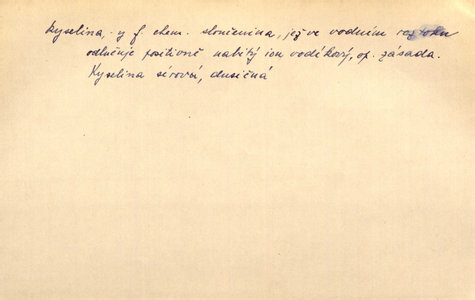 kyselina, -y f. chem. sloučenina, jež ve vodním roztoku
odlučuje positivně nabitý ion vodíkový, op. zásada.
Kyselina sírová, dusičná